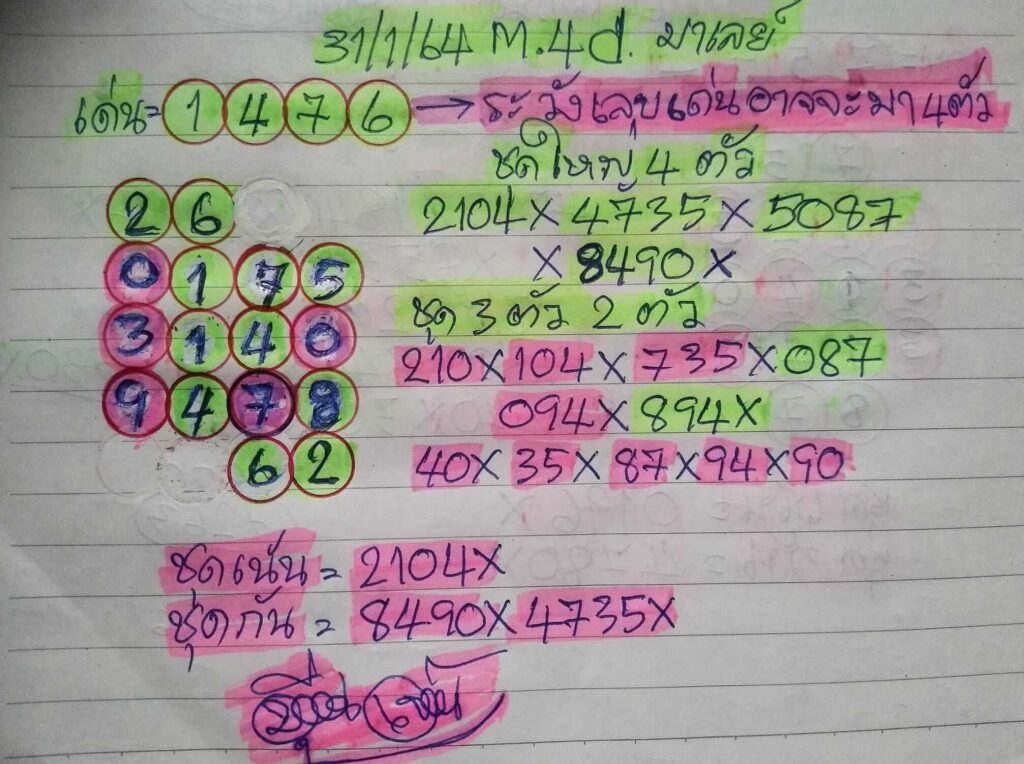 31/1/64 M.4d. มาเลย์
เด่น= 1 4 7 6 → ระวังเลขเด่นอาจจะมา 4 ตัว
ชุดใหญ่ 4 ตัว
2 6
2104X 4735X 5087
X 8490X
0 1 7 5
ชุด 3 ตัว 2 ตัว
3 1 4 0
210X 104X 735X 087
9 4 7 8
094X 894X
6 2
40X 35X 87X 94X 90
ชุดเน้น = 2104X
ชุดกัน = 8490X 4735X